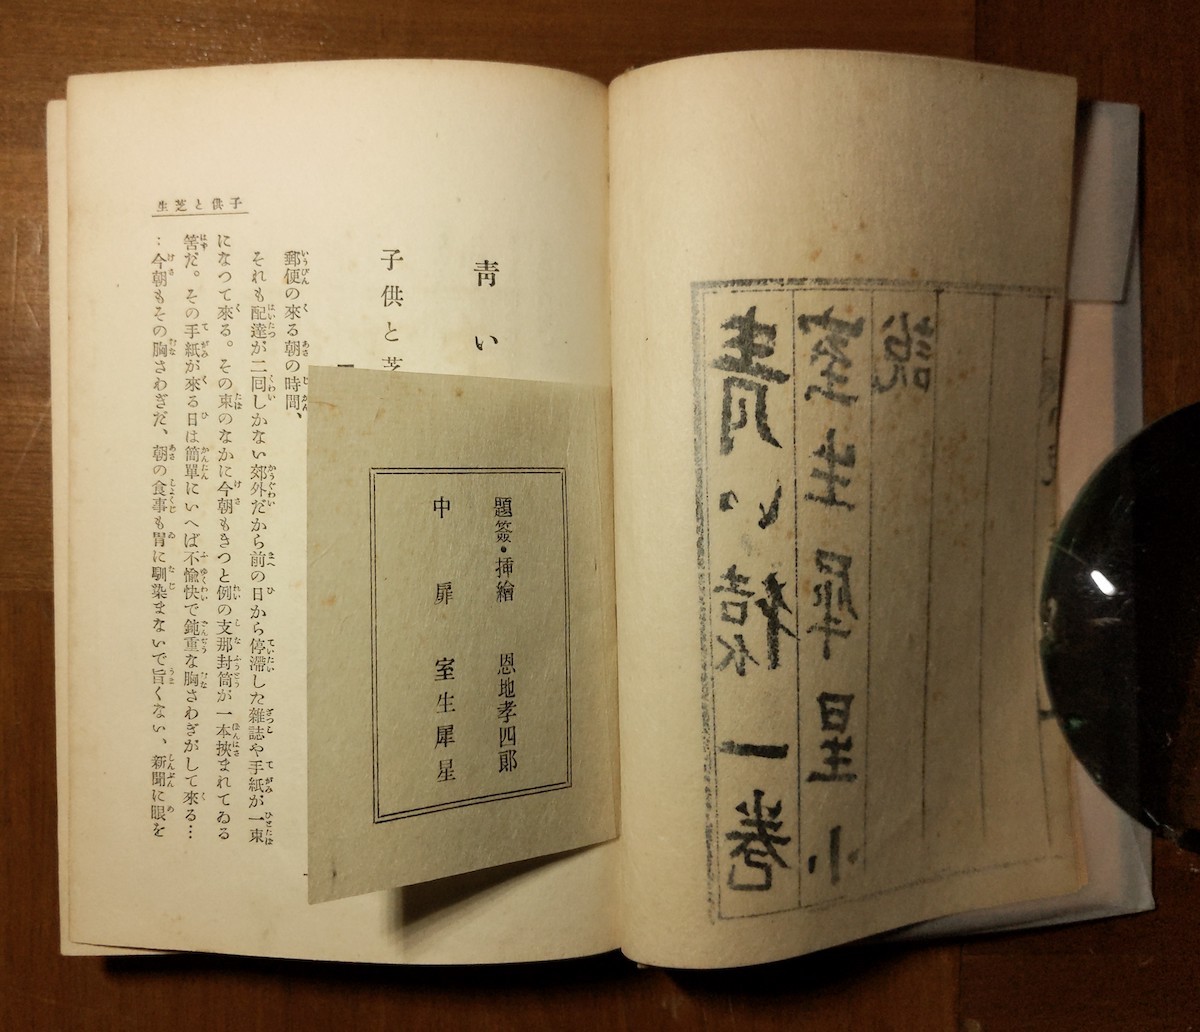 青い猿一巻
室生犀星小
説
題簽・挿繪 恩地孝四郎
中扉 室生犀星
青い
子供と芝
郵便の來る朝の時間、
それも配達が二囘しかない郊外だから前の日から停滯した雜誌や手紙が一束
になつて來る。その束のなかに今朝もきつと例の支那封筒が一本挾まれてゐる
筈だ。その手紙が來る日は簡單にいへば不愉快で鈍重な胸さわぎがして來る…
…今朝もその胸さわぎだ、朝の食事も胃に馴染まないで旨くない、新聞に眼を
子供と芝生